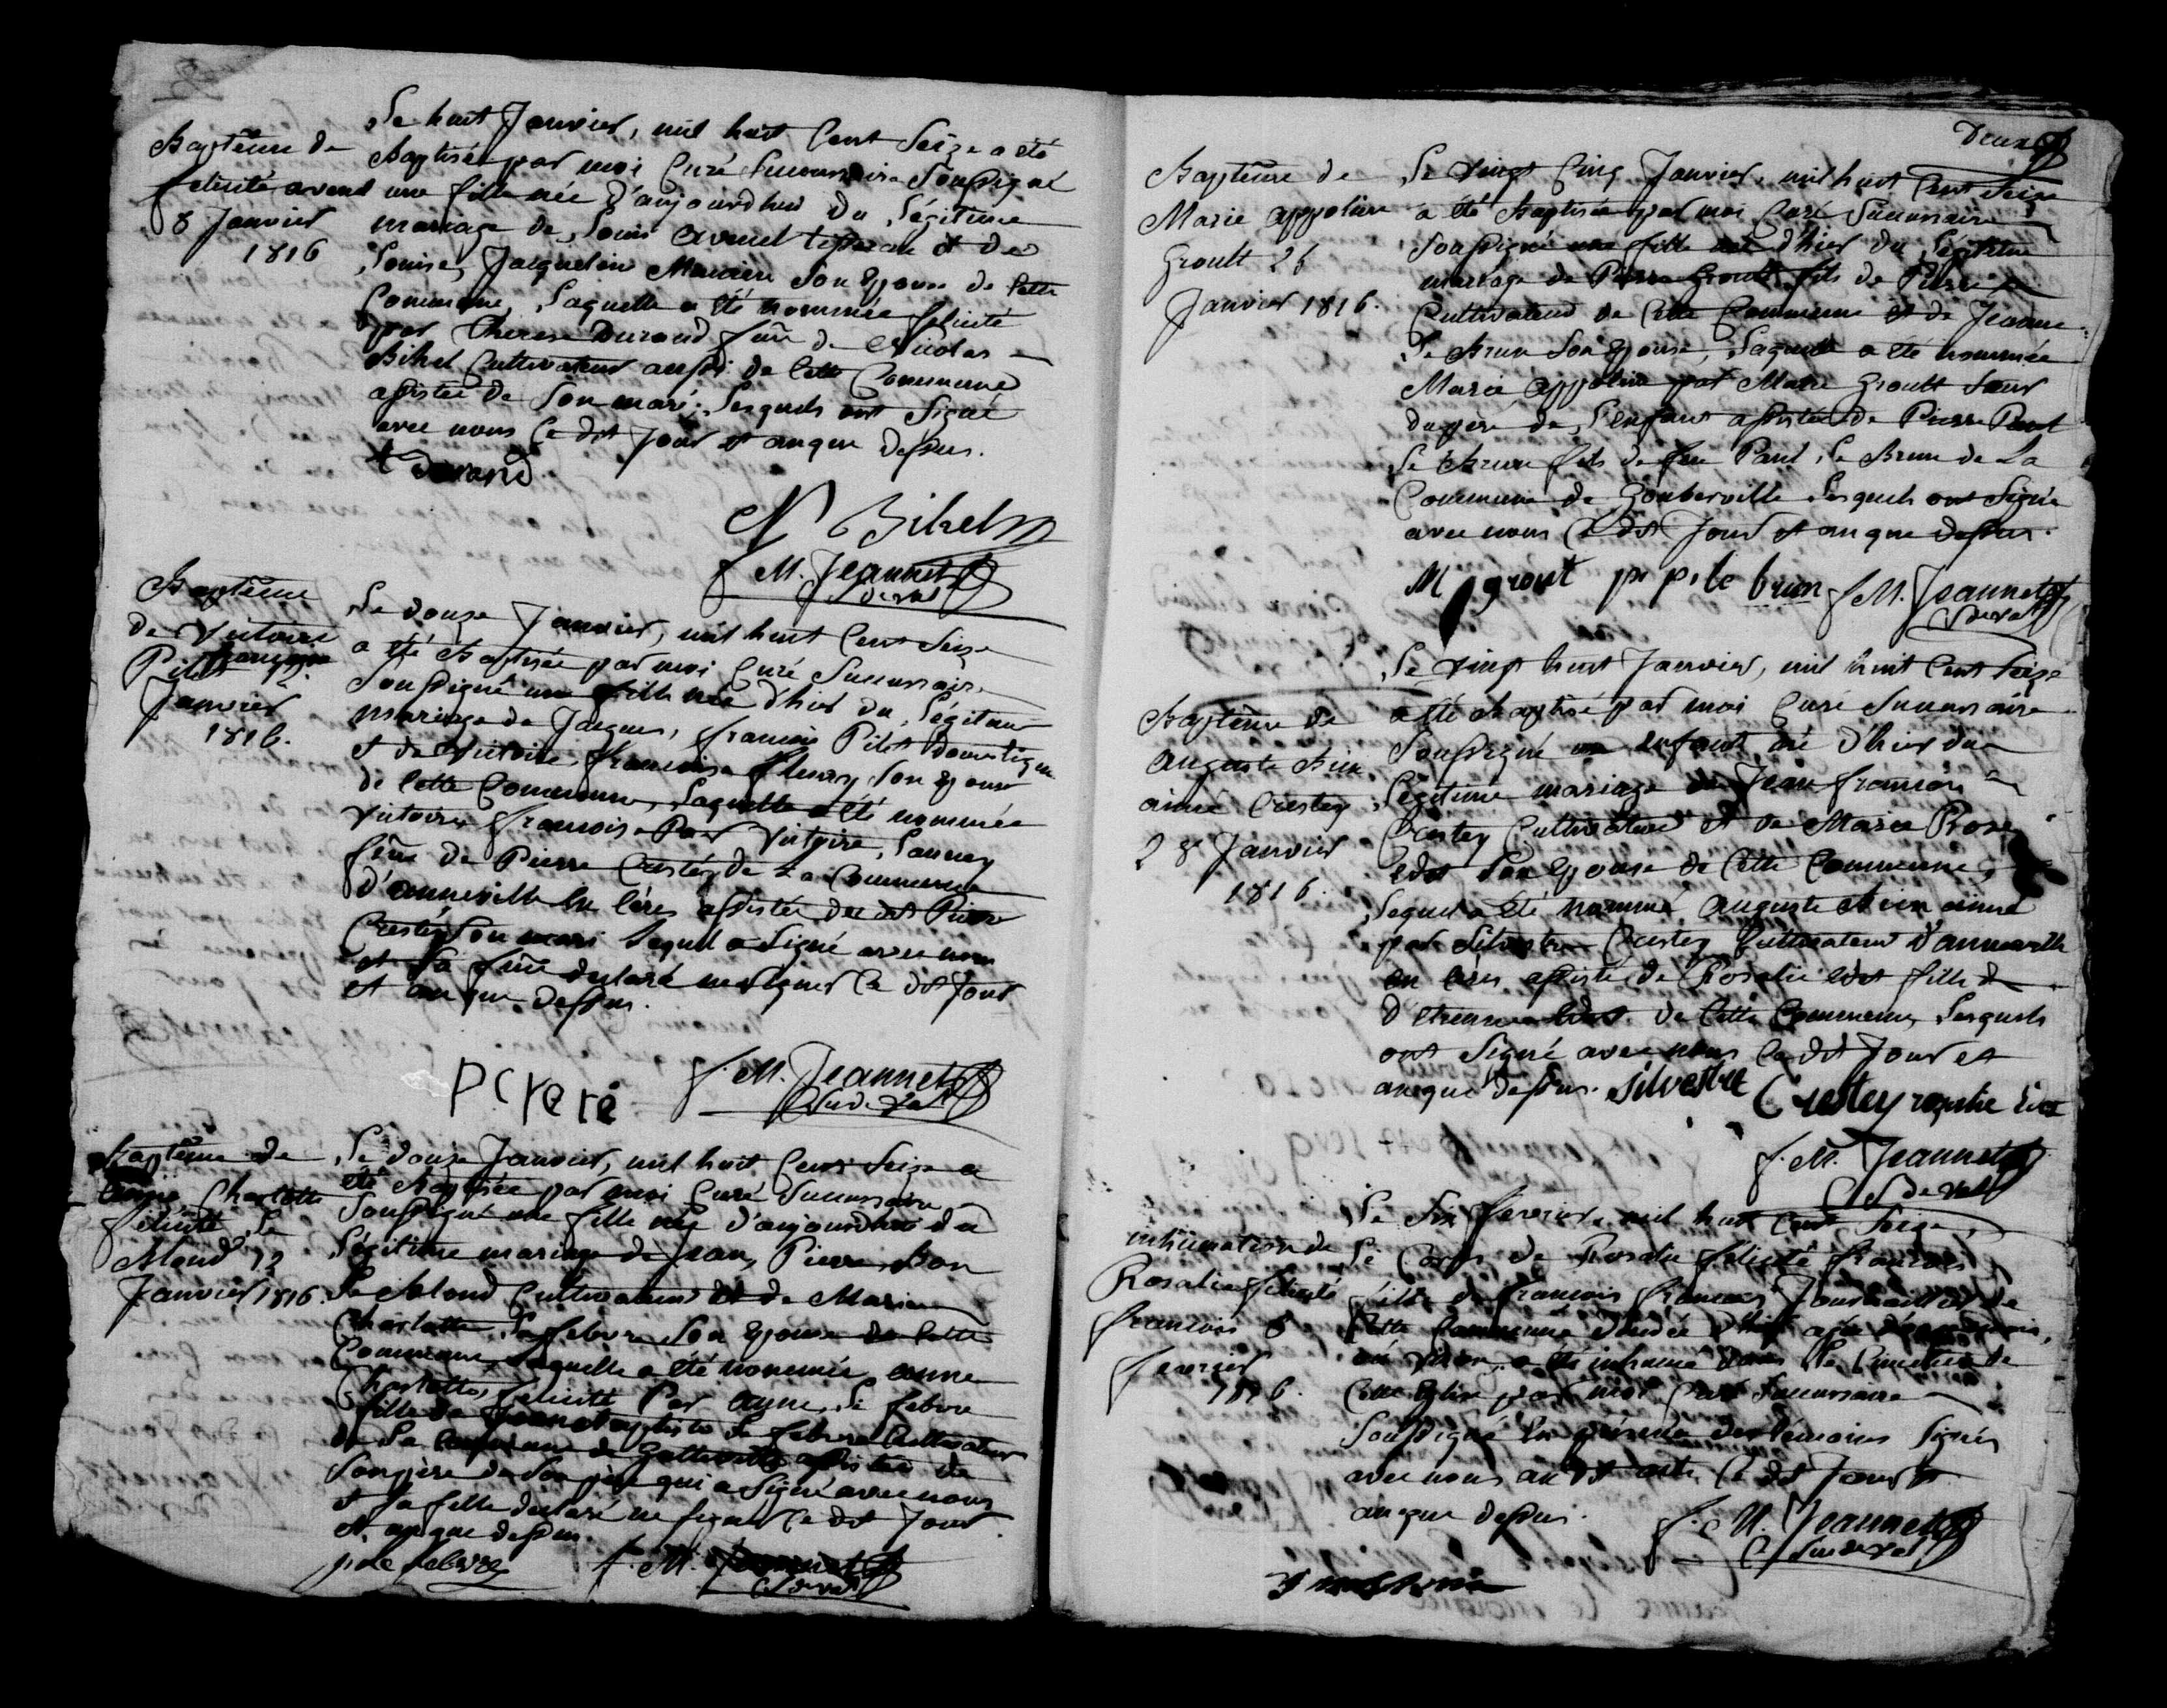 Baptême de
felicité avenel
8 Janvier
1816
Le huit Janvier, mil huit Cent Seize a été
Baptisée par moi Curé Succursaire Soussigné
une fille née d'aujourdhui du Légitime
mariage de Louis avenel et de
Louise, Jacqueline son Epouse de Cette
Commune, Laquelle a été nommée felicité
par Therese Durand fme de Nicolas
Bihel Cultivateur aussi de Cette Commune
assistée de Son mari; Lesquels ont Signé
avec nous Ce dit Jour et an que dessus.
t durand
N Bihel
f M. Jeannet
Baptême
de Victoire
françoise
Pilet
Janvier
1816.
Le douze Janvier, mil huit Cent Seize
a été Baptisée par moi Curé Succursaire
Soussigné une fille née d'hier du Légitime
mariage de Jacques, françois Pilet domestique
et de Victoire françoise fleury Son Epouse
de Cette Commune, Laquelle a été nommée
Victoire françoise Par Victoire, Lanney
fme de Pierre Crestey de La Commune
d'anneville En Cères assistée du dit Pierre
Crestey Son mari Lequel a Signé avec nous
et Sa fme declaré ne Signer Ce dit Jour
et an que dessus.
f. M. Jeannet
Baptême de
anne Charlotte
felicité, Le
Blond 12
Janvier 1816.
Le douze Janvier, mil huit Cent Seize a
été Baptisée par moi Curé Succursaire
Soussigné une fille née d'aujourdhui du
Légitime mariage de Jean, Pierre, Bon
Le Blond Cultivateur et de Marie
Charlotte, Le febvre Son Epouse de Cette
Commune, Laquelle a été nommée anne
Charlotte, felicité Par anne, Le febvre
fille de Jean Baptiste Le febvre Cultivateur
de La Commune de Gatteville assistée de
Son père qui a Signé avec nous
et Sa fille declaré ne Signer Ce dit Jour
et an que dessus.
j b le febvre
f. M. Jeannet
Deux
Baptême de
Marie appoline
Groult 25
Janvier 1816.
Le vingt Cinq Janvier, mil huit Cent Seize
a été Baptisée par moi Curé Succursaire
Soussigné une fille née d'hier du Légitime
mariage de Pierre Groult fils de Pierre
Cultivateur de Cette Commune et de Jeanne
Le Brun Son Epouse, Laquelle a été nommée
Marie appoline par Marie Groult Sœur
du père de L'enfant assistée de Pierre Paul
Le Brun fils de feu Paul, Le Brun de La
Commune de Gouberville Lesquels ont Signé
avec nous Ce dit Jour et an que dessus.
M grout pr p le brun f M. Jeannet
Baptême de
auguste Bien
aimé Crestey
28 Janvier
1816.
Le vingt huit Janvier, mil huit Cent Seize
a été Baptisé par moi Curé Succursaire
Soussigné un enfant né d'hier du
Légitime mariage de Jean françois
Crestey Cultivateur et de Marie Rose
Son Epouse de Cette Commune,
Lequel a été nommé auguste Bien aimé
par Silvestre Crestey Cultivateur d'anneville
en Cères assisté de Rosalie fille
d'Etienne de Cette Commune, Lesquels
ont Signé avec nous Ce dit Jour et
an que dessus. Silvestre Crestey rosalie
f. M. Jeannet
inhumation de
Rosalie felicité
françois 6
fevrier
1816.
Le Six fevrier, mil huit Cent Seize,
Le Corps de Rosalie felicité françois
fille de françois françois Journaillier de
Cette Commune
a été inhumé dans Le Cimetiere de
Cette Eglise par moi Curé Succursaire
Soussigné En présence des témoins Signés
avec nous au dit acte Ce dit Jour et
an que dessus.
f. M. Jeannet